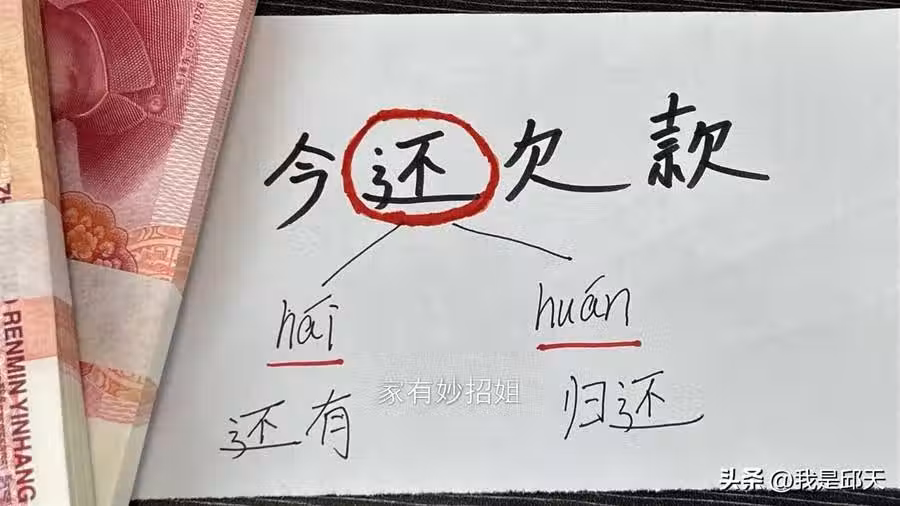 今还欠款
hái huán
还有 归还
家有妙招姐
RENMIN YINHANG
头条 @我是邱天